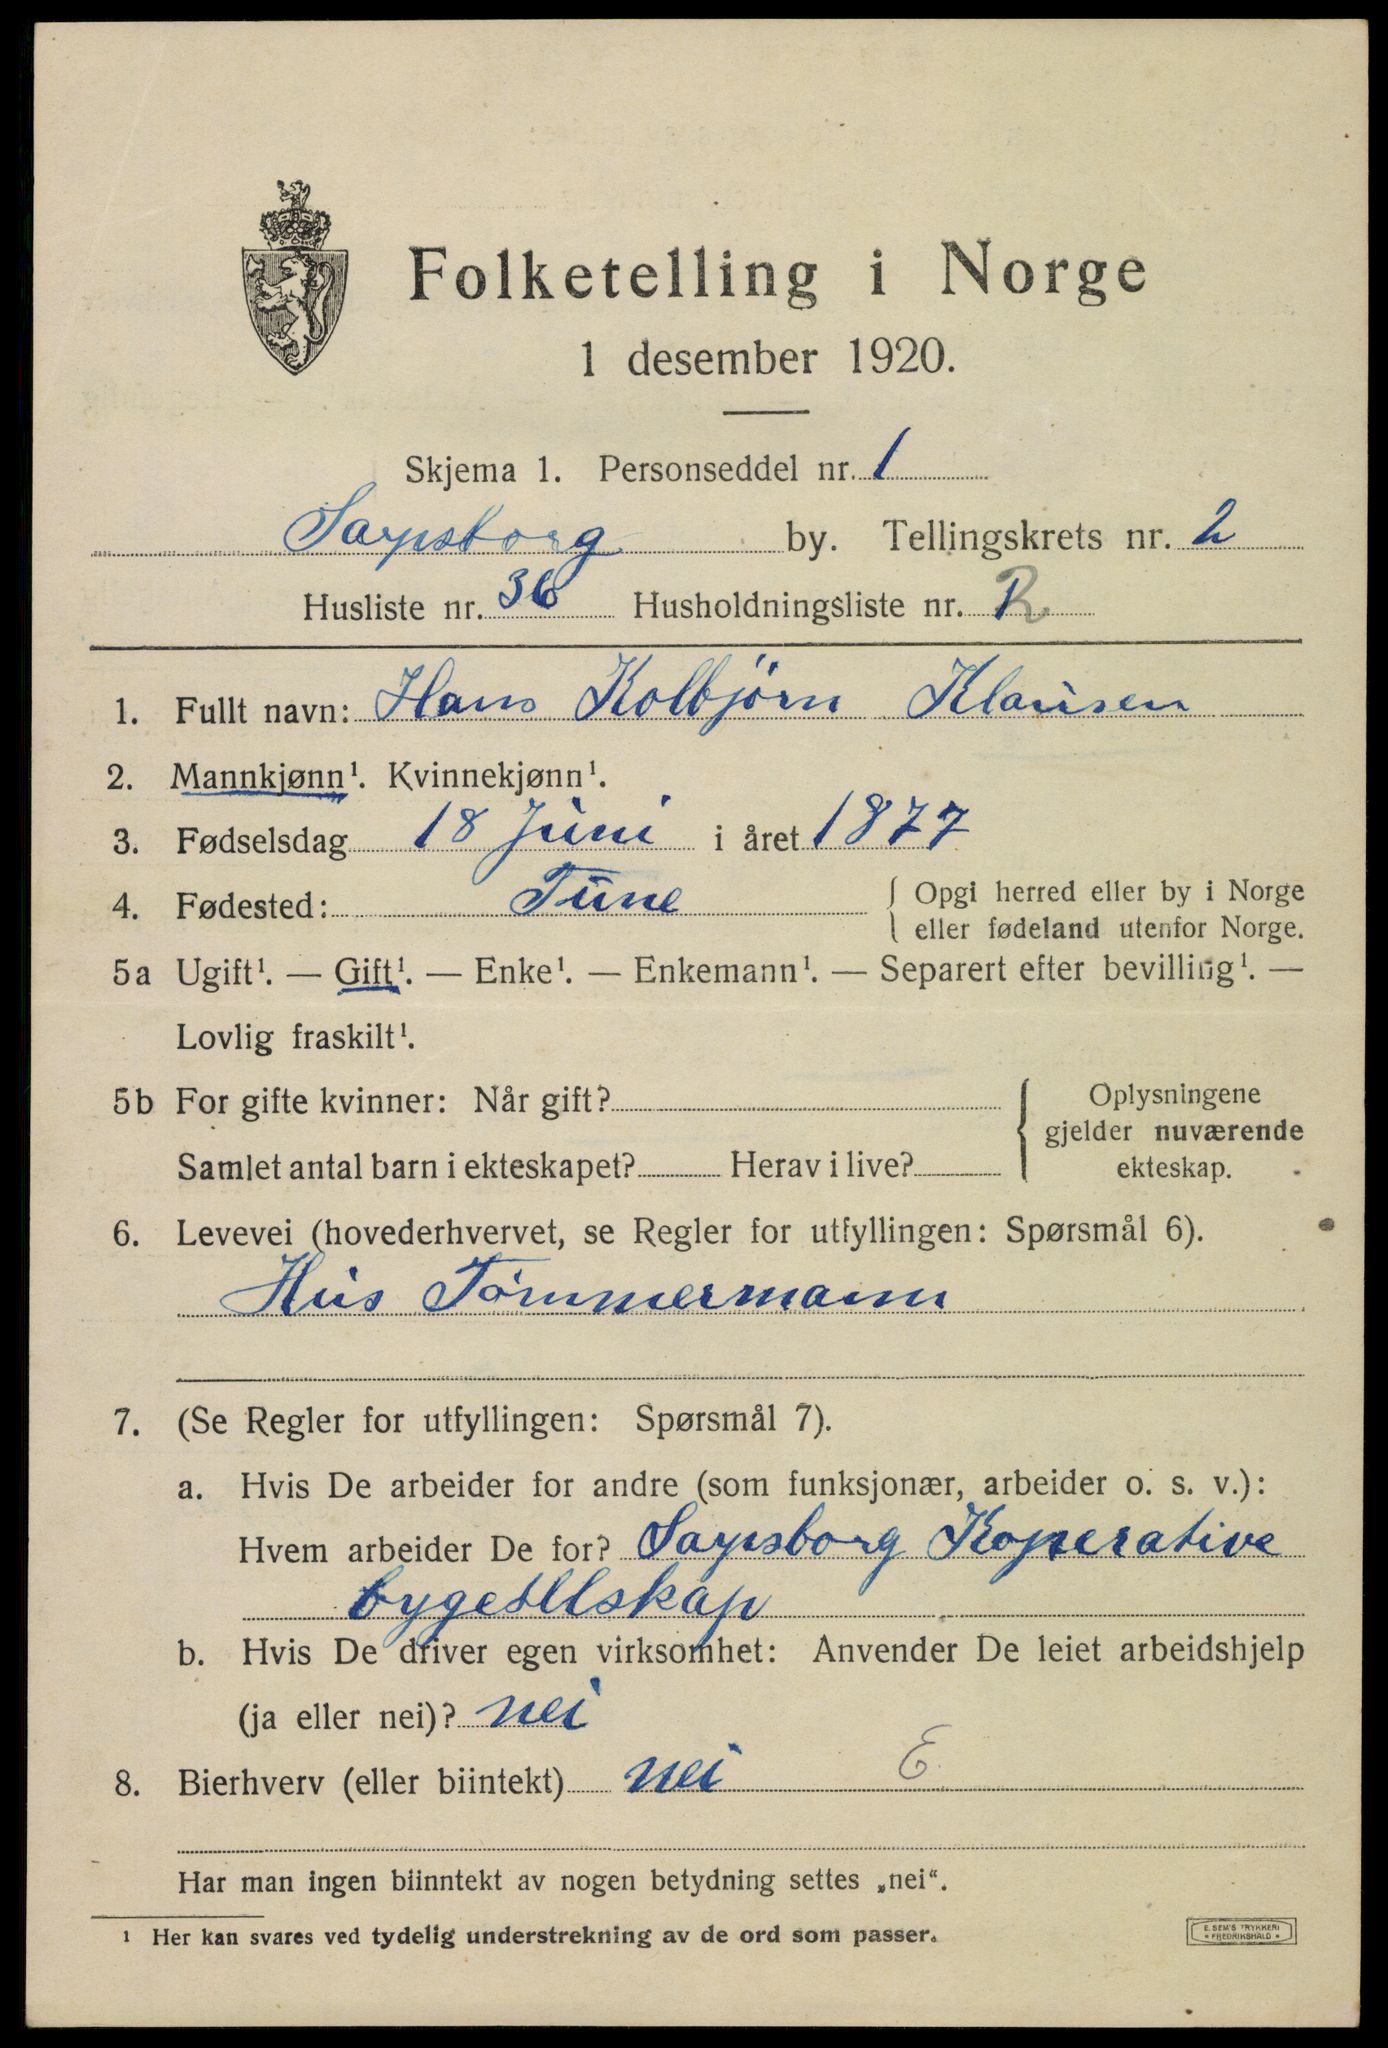 Folketelling i Norge
1 desember 1920.
Skjema 1. Personseddel nr. 1
Sarpsborg by. Tellingskrets nr. 2
Husliste nr. 36 Husholdningsliste nr.
1. Fullt navn: Hans Kolbjørn Klausen
2. Mannkjønn¹. Kvinnekjønn¹.
3. Fødselsdag 18 Juni i året 1877
4. Fødested: Tune { Opgi herred eller by i Norge
eller fødeland utenfor Norge.
5a Ugift¹. — Gift¹. — Enke¹. — Enkemann¹. — Separert efter bevilling¹. —
Lovlig fraskilt¹.
5b For gifte kvinner: Når gift? { Oplysningene
gjelder nuværende
Samlet antal barn i ekteskapet? Herav i live? ekteskap.
6. Levevei (hovederhvervet, se Regler for utfyllingen: Spørsmål 6).
Hus Tømmermann
7. (Se Regler for utfyllingen: Spørsmål 7).
a. Hvis De arbeider for andre (som funksjonær, arbeider o. s. v.):
Hvem arbeider De for? Sarpsborg Koperative
bygesllskap
b. Hvis De driver egen virksomhet: Anvender De leiet arbeidshjelp
(ja eller nei)? nei
8. Bierhverv (eller biintekt) nei E
Har man ingen biinntekt av nogen betydning settes „nei“.
¹ Her kan svares ved tydelig understrekning av de ord som passer.
E. SEM'S TRYKKERI
* FREDRIKSHALD *